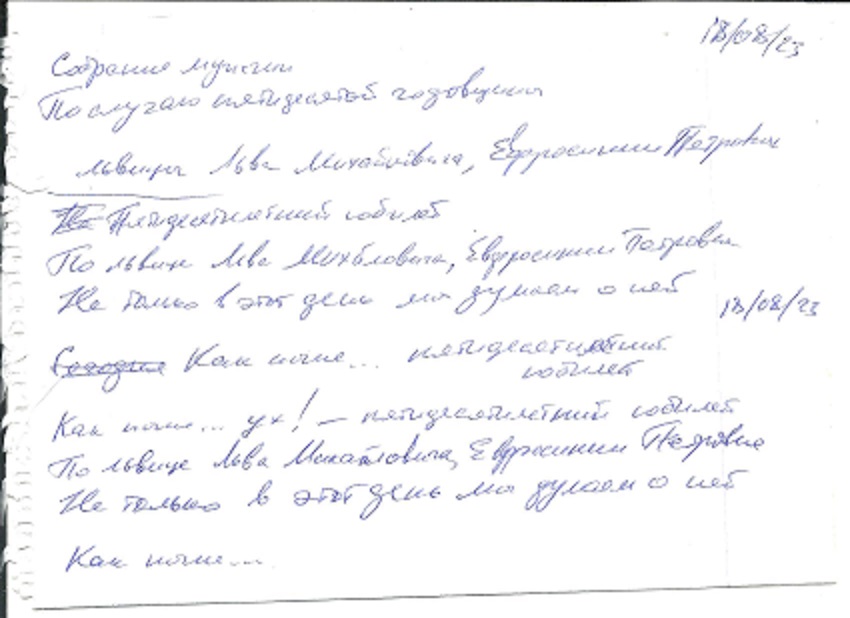 18/08/23
Собрание мужчин
По случаю пятидесятой годовщины
львицы Льва Михайловича, Евфросинии Петровны
Пятидесятилетний юбилей
По львице Льва Михайловича, Евфросинии Петровне
Не только в этот день мы думаем о ней
18/08/23
Сегодня Как ныне... пятидесятилетний
юбилей
Как ныне... ух! — пятидесятилетний юбилей
По львице Льва Михайловича, Евфросинии Петровне
Не только в этот день мы думаем о ней
Как ныне...